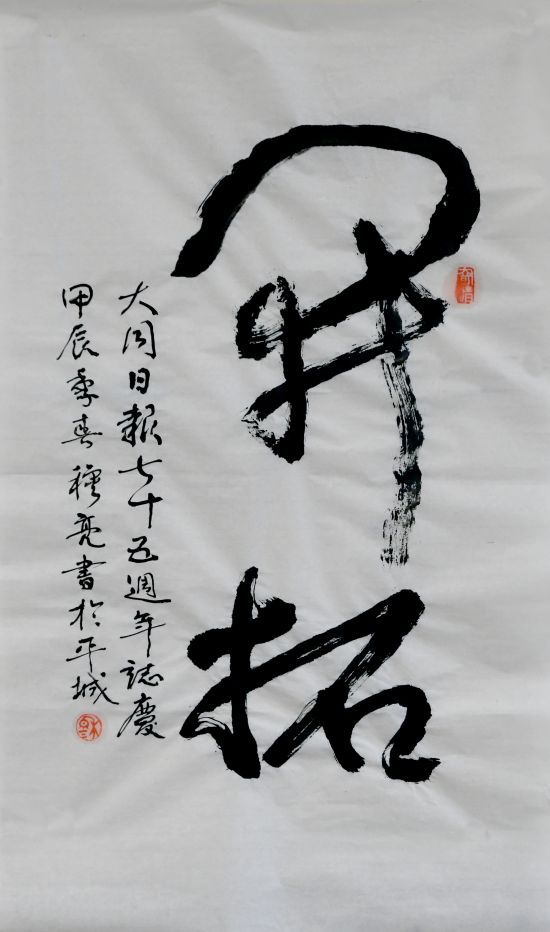 開拓
大同日報七十五週年誌慶
甲辰季春種亮書於平城